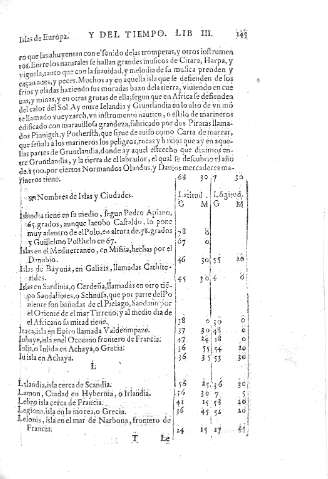 Islas de Europa. Y DEL TIEMPO. LIB III. 145
en que las ahuyentan con el sonido de las trompetas, y otros instrumen
tos. Entre los naturales se hallan grandes musicos de Citara, Harpa, y
viguela, tanto que con la suavidad, y melodia de su musica prenden y
aves, y peces. Muchos ay en aquella isla que se defienden de los
frios y eladas haziendo sus moradas baxo da tierra, viviendo en cue
vas, y minas, y en otras grutas de ella; segun que en Africa se defienden
del calor del Sol Ay entre Islandia y Gruntlandia en lo alto de un mō
te llamado vueyzarch, un instrumento nautico, a estilo de marineros
edificado con maravillosa grandeza, fabricado por dos Piratas llama-
dos Pinnigth, y Pothersth, que sirve de suso como Carta de marear,
que señala à los marineros los peligros, rocas y baxios que ay en aque-
llas partes de Gruntlandia, donde ay aquel estrecho que divi
tre Gruntlandia, y la tierra de el labrador, el qual se descubrio el año
de 1500. por ciertos Normandos Olandes, y Dantos mercaderes ma-
rineros tiene. 68 30 7 30
Nombres de Islas y Ciudades. Latitud. Lōgitud.
G M G M
Islandia tiene en su medio, segun Pedro Apiano,
65. grados, aunque Iacobo Castaldo, lo pone
muy adentro del Polo, en altura de 78. grados 78 0
y Guillelmo Posthelo en 67. 67 0
Islas en el en Misia, hechas por el
Danubio. 46 30 55 20
Islas de Bayona, en Galizia, llamadas Cathite-
rides. 45 30 4 0
Islas en Sardinia, o Cerdeña, llamadas en otro tiē-
po Sandaliotes, o Schnusa, que por parte del Po
niente son bañadas de el Pielago, Sandaro por
el Oriente de el mar Tirreno, y al medio dia de
el Africano su mitad tiene. 38 0 30 0
Itaca, isla en Epiro llamada Valdecompare. 37 30 48 0
isla en el Occeano frontero de Francia. 47 24 18 0
o Iulida en Achaya, o Grecia. 36 55 54 20
isla en Achaya. 36 35 55 30
L
isla cerca de Scandia. 56 36 30
Lamon, Ciudad en Hybernia, o Irlandia. 56 30 7 5
isla cerca de Francia. 41 15 58 20
isla en la morea, o Grecia. 36 45 54 20
isla en el mar de Narbona, frontero de
Francia. 24 15 27 45
T Le